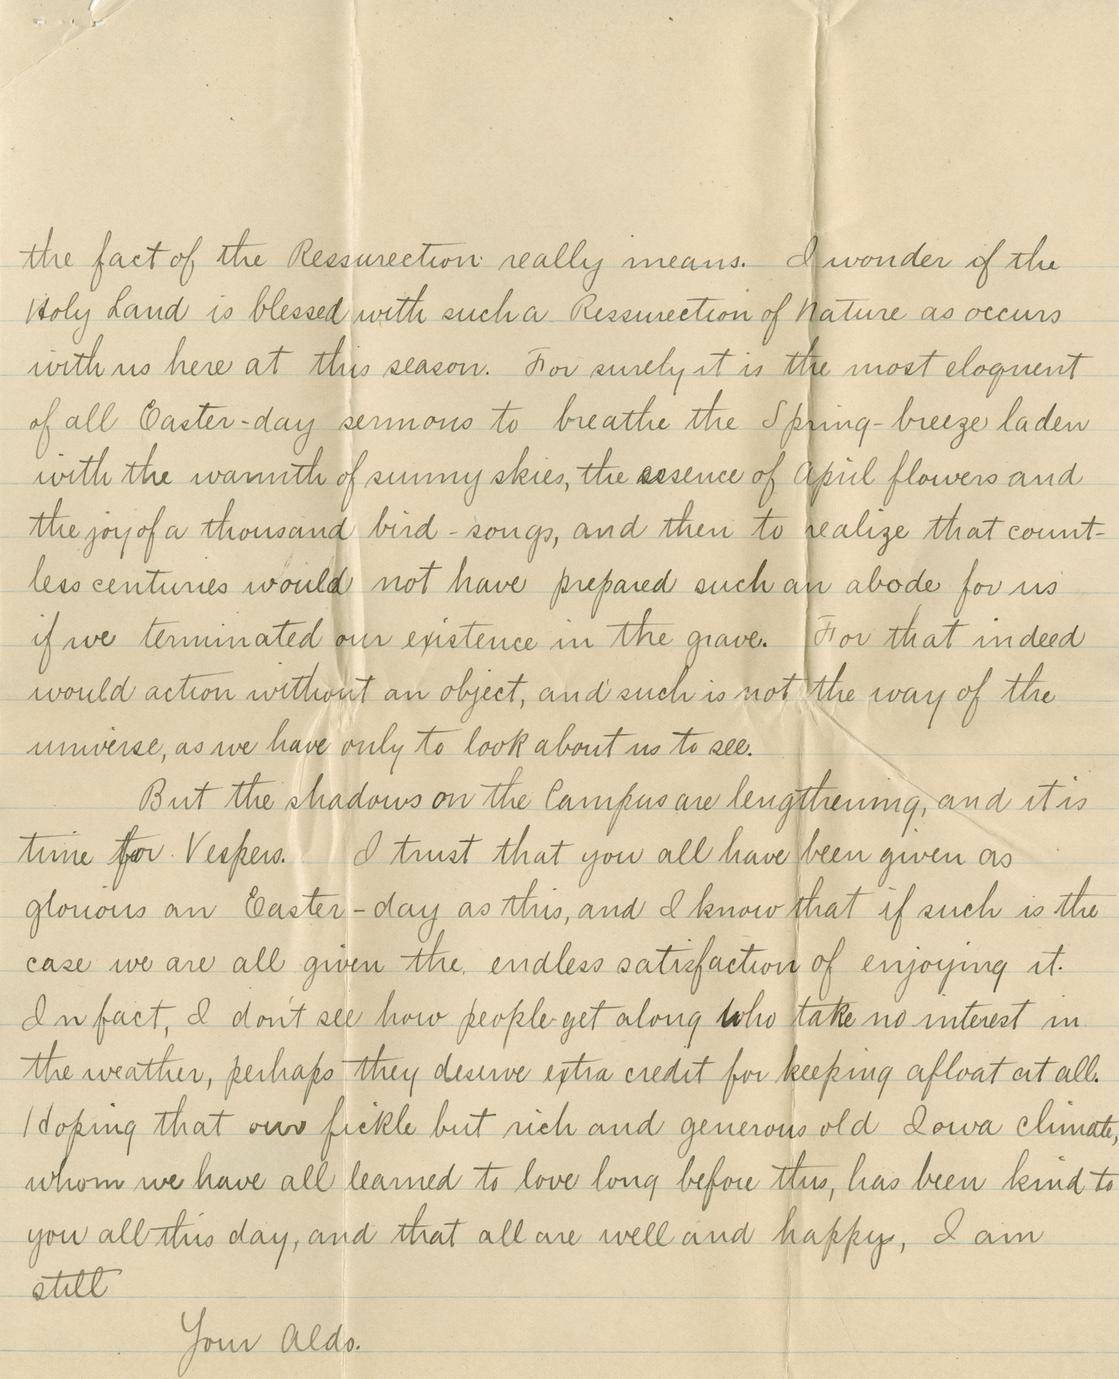 the fact of the Ressurection really means. I wonder if the
Holy Land is blessed with such a Ressurection of Nature as occurs
with us here at this season. For surely it is the most eloquent
of all Easter-day sermons to breathe the Spring-breeze laden
with the warmth of sunny skies, the essence of April flowers and
the joy of a thousand bird-songs, and then to realize that count-
less centuries would not have prepared such an abode for us
if we terminated our existence in the grave. For that indeed
would action without an object, and such is not the way of the
universe, as we have only to look about us to see.
But the shadows on the Campus are lengthening, and it is
time for Vespers. I trust that you all have been given as
glorious an Easter-day as this, and I know that if such is the
case we are all given the endless satisfaction of enjoying it.
In fact, I don't see how people get along who take no interest in
the weather, perhaps they deserve extra credit for keeping afloat at all.
Hoping that our fickle but rich and generous old Iowa climate,
whom we have all learned to love long before this, has been kind to
you all this day, and that all are well and happy, I am
still
Your Aldo.